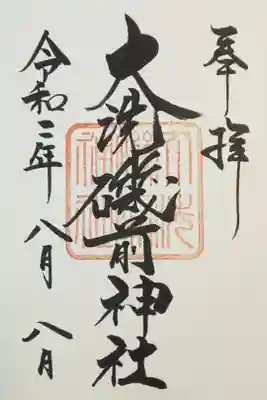 奉拝
大洗磯前神社
令和二年八月八日